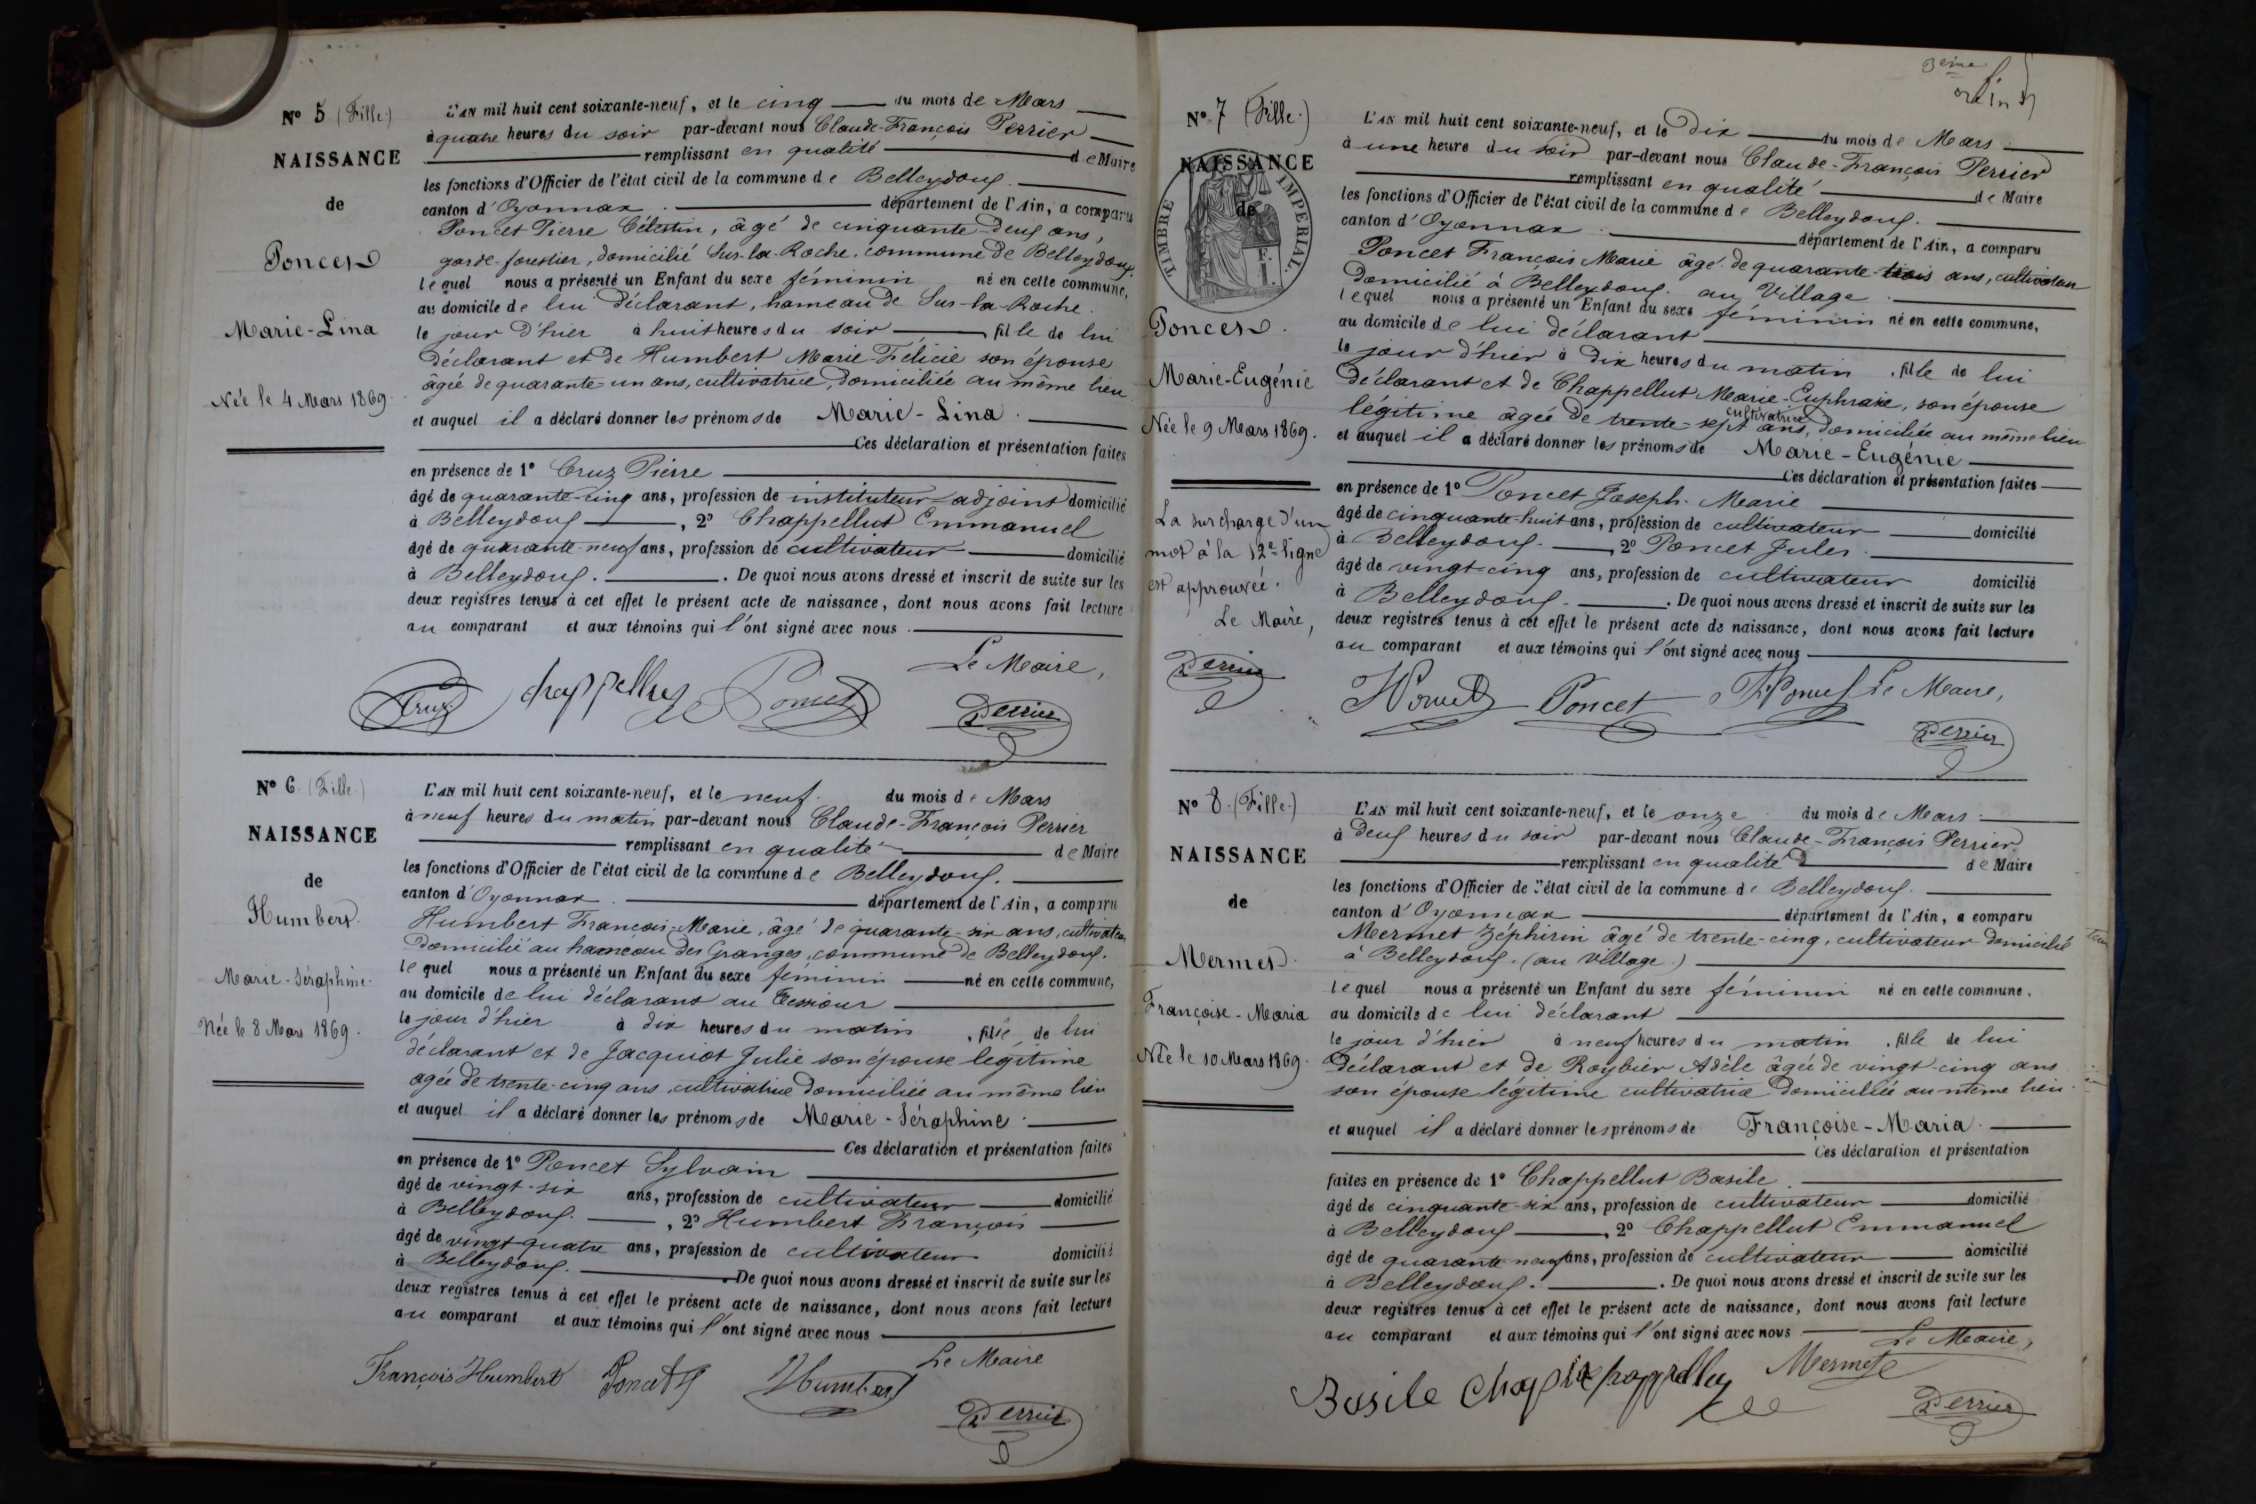 Nº 5 (Fille)
NAISSANCE
de
Poncet
Marie-Lina
Née le 4 Mars 1869.
L'AN mil huit cent soixante-neuf, et le cinq du mois de Mars
à quatre heures du soir par-devant nous Claude-François Perrier
remplissant en qualité de Maire
les fonctions d'Officier de l'état civil de la commune de Belleydoux.
canton d'Oyonnax. département de l'Ain, a comparu
Poncet Pierre Célestin, âgé de cinquante-deux ans,
garde-forestier, domicilié Sur-la-Roche, commune de Belleydoux.
lequel nous a présenté un Enfant du sexe féminin né en cette commune,
au domicile de lui déclarant, hameau de Sur-la-Roche.
le jour d'hier à huit heures du soir fille de lui
déclarant et de Humbert Marie Félicie son épouse
âgée de quarante-un ans, cultivatrice, domiciliée au même lieu
et auquel il a déclaré donner les prénoms de Marie-Lina.
Ces déclaration et présentation faites
en présence de 1º Cruz Pierre
âgé de quarante-cinq ans, profession de instituteur-adjoint domicilié
à Belleydoux, 2º Chappellut Emmanuel
âgé de quarante-neuf ans, profession de cultivateur domicilié
à Belleydoux. . De quoi nous avons dressé et inscrit de suite sur les
deux registres tenus à cet effet le présent acte de naissance, dont nous avons fait lecture
au comparant et aux témoins qui l'ont signé avec nous.
Le Maire,
Cruz Chappellus Poncet Perrier
Nº 6 (Fille)
NAISSANCE
de
Humbert.
Marie-Séraphine.
Née le 8 Mars 1869.
L'AN mil huit cent soixante-neuf, et le neuf. du mois de Mars
à neuf heures du matin par-devant nous Claude-François Perrier
remplissant en qualité de Maire
les fonctions d'Officier de l'état civil de la commune de Belleydoux.
canton d'Oyonnax. département de l'Ain, a comparu
Humbert François-Marie, âgé de quarante-six ans, cultivateur,
domicilié au hameau des Granges, commune de Belleydoux.
lequel nous a présenté un Enfant du sexe féminin né en cette commune,
au domicile de lui déclarant au
le jour d'hier à dix heures du matin, fille de lui
déclarant et de Jacquiot Julie son épouse légitime
agée de trente-cinq ans, cultivatrice domiciliée au même lieu
et auquel il a déclaré donner les prénoms de Marie-Séraphine.
Ces déclaration et présentation faites
en présence de 1º Poncet Sylvain
âgé de vingt-six ans, profession de cultivateur domicilié
à Belleydoux., 2º Humbert François
âgé de vingt-quatre ans, profession de cultivateur domicilié
à Belleydoux. . De quoi nous avons dressé et inscrit de suite sur les
deux registres tenus à cet effet le présent acte de naissance, dont nous avons fait lecture
au comparant et aux témoins qui l'ont signé avec nous
Le Maire
François Humbert Poncet S Humbert Perrier
3ème
Nº 7 (Fille.)
NAISSANCE
de
TIMBRE IMPERIAL.
Poncet.
Marie-Eugénie
Née le 9 Mars 1869.
La surcharge d'un
mot à la 12e ligne
est approuvée.
Le Maire,
Perrier
L'AN mil huit cent soixante-neuf, et le dix du mois de Mars
à une heure du soir par-devant nous Claude-François Perrier
remplissant en qualité de Maire
les fonctions d'Officier de l'état civil de la commune de Belleydoux.
canton d'Oyonnax. département de l'Ain, a comparu
Poncet François Marie âgé de quarante-trois ans, cultivateur
domicilié à Belleydoux. au Village.
lequel nous a présenté un Enfant du sexe féminin né en cette commune,
au domicile de lui déclarant
le jour d'hier à dix heures du matin, fille de lui
déclarant et de Chappellut Marie-Euphrasie, son épouse
légitime âgée de trente-sept ans, cultivatrice domiciliée au même lieu
et auquel il a déclaré donner les prénoms de Marie-Eugénie
Ces déclaration et présentation faites
en présence de 1º Poncet Joseph-Marie
âgé de cinquante-huit ans, profession de cultivateur domicilié
à Belleydoux., 2º Poncet Jules.
âgé de vingt-cinq ans, profession de cultivateur domicilié
à Belleydoux. . De quoi nous avons dressé et inscrit de suite sur les
deux registres tenus à cet effet le présent acte de naissance, dont nous avons fait lecture
au comparant et aux témoins qui l'ont signé avec nous
Poncet Poncet Poncet Le Maire,
Perrier
Nº 8. (Fille.)
NAISSANCE
de
Mermet.
Françoise-Maria
Née le 10 Mars 1869.
L'AN mil huit cent soixante-neuf, et le onze du mois de Mars.
à deux heures du soir par-devant nous Claude-François Perrier
remplissant en qualité de Maire
les fonctions d'Officier de l'état civil de la commune de Belleydoux.
canton d'Oyonnax département de l'Ain, a comparu
Mermet Zéphirin âgé de trente-cinq, cultivateur domicilié
à Belleydoux. (au Village.)
lequel nous a présenté un Enfant du sexe féminin né en cette commune.
au domicile de lui déclarant
le jour d'hier à neuf heures du matin, fille de lui
déclarant et de Roybier Adèle âgée de vingt-cinq ans
son épouse légitime cultivatrice domiciliée au même lieu.
et auquel il a déclaré donner les prénoms de Françoise-Maria.
Ces déclaration et présentation
faites en présence de 1º Chappellut Basile.
âgé de cinquante-six ans, profession de cultivateur domicilié
à Belleydoux, 2º Chappellut Emmanuel
âgé de quarante-neuf ans, profession de cultivateur domicilié
à Belleydoux. . De quoi nous avons dressé et inscrit de suite sur les
deux registres tenus à cet effet le présent acte de naissance, dont nous avons fait lecture
au comparant et aux témoins qui l'ont signé avec nous
Le Maire,
Basile Mermet
Perrier